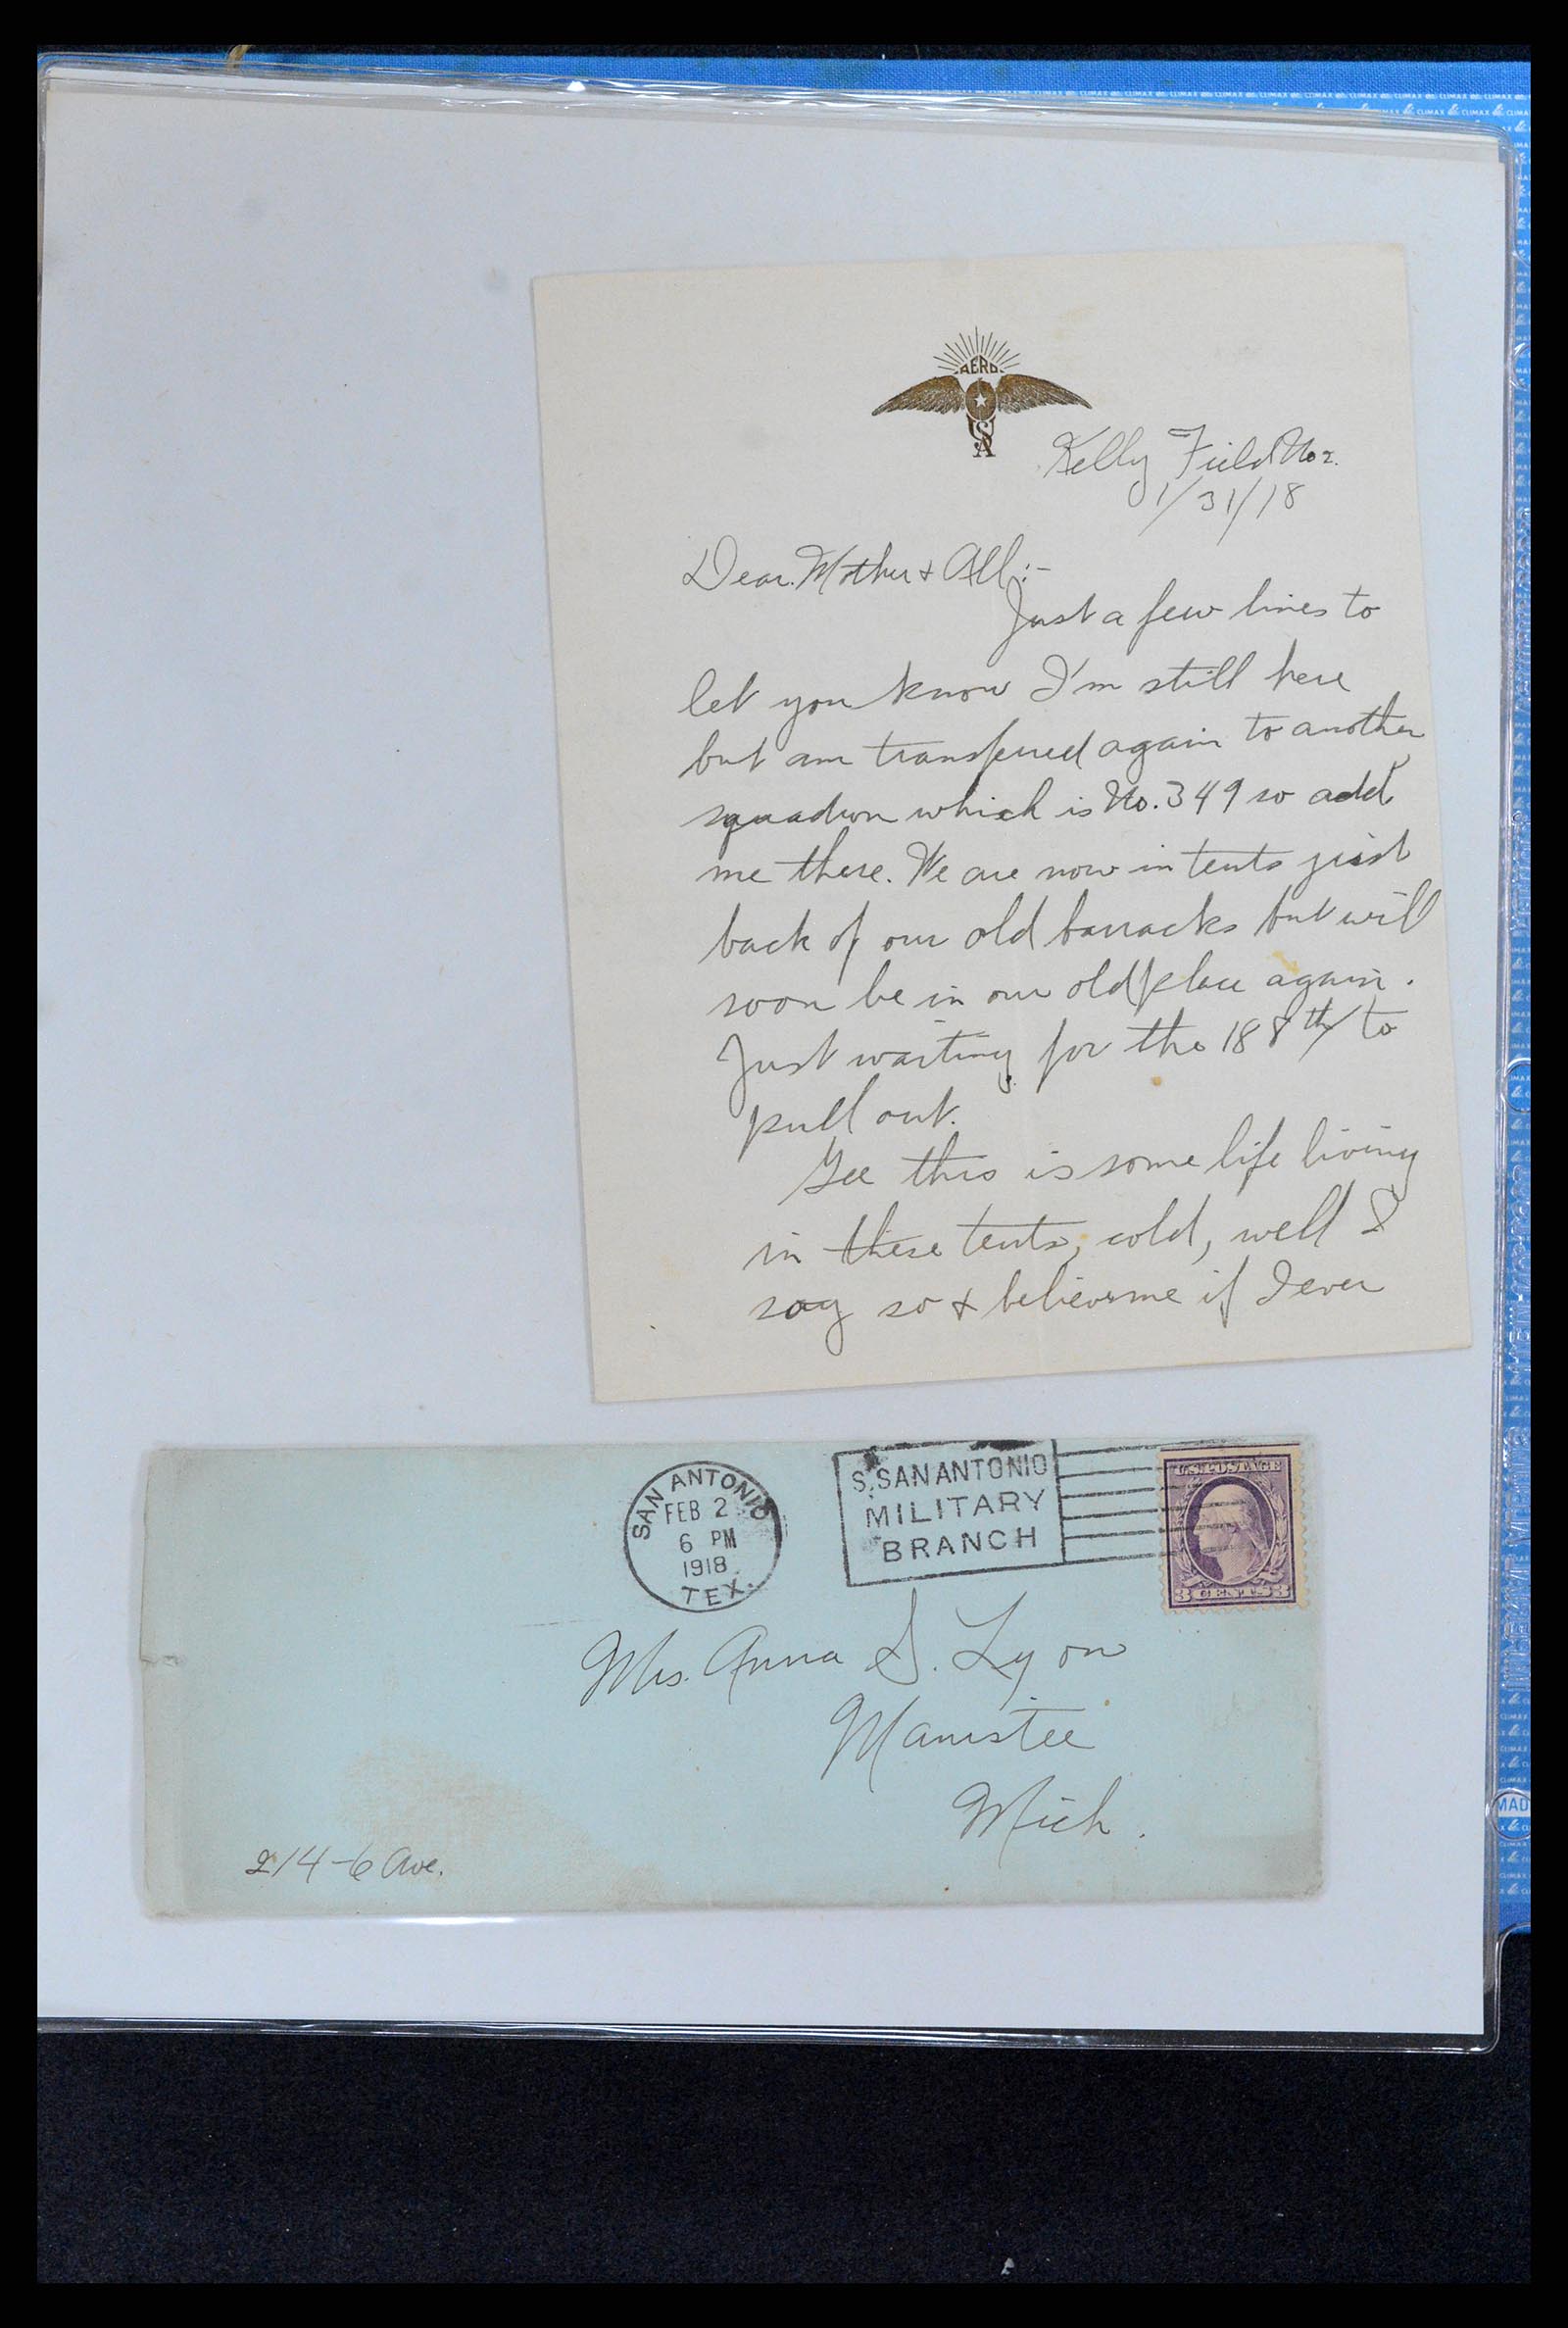 AERO
USA
Kelly Field No 2.
1/31/18
Dear Mother & All:-
Just a few lines to
let you know I'm still here
but am transferred again to another
squadron which is No. 349 so add
me there. We are now in tents just
back of our old barracks but will
soon be in our old place again.
Just waiting for the 188th to
pull out.
Gee this is some life living
in these tents, cold, well I
say so & believe me if I ever
SAN ANTONIO
FEB 2
6 PM
1918
TEX.
S. SAN ANTONIO
MILITARY
BRANCH
U.S. POSTAGE
3 CENTS 3
Mrs. Anna S. Lyon
Manistee
Mich.
214-6 Ave.
CLIMAX
MAD